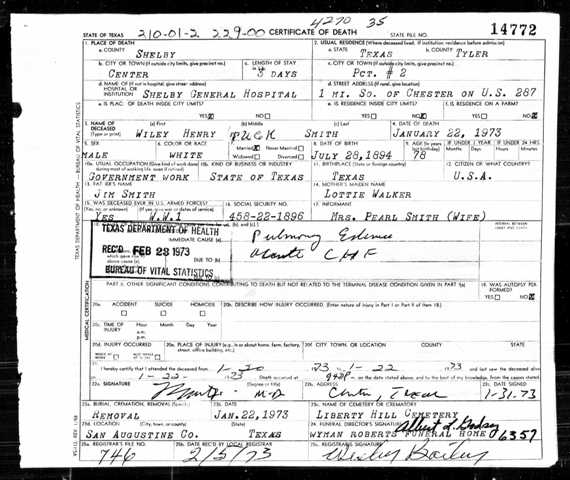 4270 35
STATE OF TEXAS 210-01-2 229-00 CERTIFICATE OF DEATH STATE FILE NO. 14772
1. PLACE OF DEATH 2. USUAL RESIDENCE (Where deceased lived. If institution: residence before admission)
a. COUNTY SHELBY a. STATE TEXAS b. COUNTY TYLER
b. CITY OR TOWN (If outside city limits, give precinct no.) CENTER c. LENGTH OF STAY 8 DAYS c. CITY OR TOWN (If outside city limits, give precinct no.) PCT. # 2
d. NAME OF (If not in hospital, give street address) HOSPITAL OR INSTITUTION SHELBY GENERAL HOSPITAL d. STREET ADDRESS (If rural, give location) 1 MI. SO. OF CHESTER ON U.S. 287
e. IS PLACE OF DEATH INSIDE CITY LIMITS? YES NO e. IS RESIDENCE INSIDE CITY LIMITS? YES NO f. IS RESIDENCE ON A FARM? YES NO
3. NAME OF DECEASED (Type or print) (a) First WILEY HENRY (b) Middle PUCK (c) Last SMITH 4. DATE OF DEATH JANUARY 22, 1973
5. SEX MALE 6. COLOR OR RACE WHITE 7. Married Never Married Widowed Divorced 8. DATE OF BIRTH JULY 28, 1894 9. AGE (In years last birthday) 78 IF UNDER 1 YEAR Months Days IF UNDER 24 HRS. Hours Min.
10a. USUAL OCCUPATION (Give kind of work done during most of working life, even if retired) GOVERNMENT WORK 10b. KIND OF BUSINESS OR INDUSTRY STATE OF TEXAS 11. BIRTHPLACE (State or foreign country) TEXAS 12. CITIZEN OF WHAT COUNTRY? U.S.A.
13. FATHER'S NAME JIM SMITH 14. MOTHER'S MAIDEN NAME LOTTIE WALKER
15. WAS DECEASED EVER IN U.S. ARMED FORCES? (Yes, no, or unknown) YES (If yes, give war or dates of service) W.W.1 16. SOCIAL SECURITY NO. 458-22-1896 17. INFORMANT MRS. PEARL SMITH (WIFE)
TEXAS DEPARTMENT OF HEALTH
IMMEDIATE CAUSE (a) Pulmonary Edema
REC'D FEB 23 1973 DUE TO (b) Acute CHF
BUREAU OF VITAL STATISTICS DUE TO (c)
PART II. OTHER SIGNIFICANT CONDITIONS CONTRIBUTING TO DEATH BUT NOT RELATED TO THE TERMINAL DISEASE CONDITION GIVEN IN PART I(a) 19. WAS AUTOPSY PERFORMED? YES NO
20a. ACCIDENT SUICIDE HOMICIDE 20b. DESCRIBE HOW INJURY OCCURRED. (Enter nature of injury in Part I or Part II of item 18).
20c. TIME OF INJURY Hour Month Day Year a.m. p.m.
20d. INJURY OCCURRED 20e. PLACE OF INJURY (e.g., in or about home, farm, factory, street, office building, etc.) 20f. CITY, TOWN, OR LOCATION COUNTY STATE
1-20 73 1-22 73 and last saw the deceased alive
1-22- 73 Death occurred at m. on the date stated above; and to the best of my knowledge, from the causes stated
22a. SIGNATURE (Degree or title) M.D 22b. ADDRESS Center, Texas 22c. DATE SIGNED 1-31-73
23a. BURIAL, CREMATION, REMOVAL (Specify) REMOVAL 23b. DATE JAN. 22, 1973 23c. NAME OF CEMETERY OR CREMATORY LIBERTY HILL CEMETERY
23d. LOCATION (City, town, or county) (State) SAN AUGUSTINE CO. TEXAS 24. FUNERAL DIRECTOR'S SIGNATURE Albert L. Godsey WYMAN ROBERTS FUNERAL HOME 6357
25a. REGISTRAR'S FILE NO. 746 25b. DATE REC'D BY LOCAL REGISTRAR 2/5/73 25c. REGISTRAR'S SIGNATURE Wesley Bailey
TEXAS DEPARTMENT OF HEALTH — BUREAU OF VITAL STATISTICS
MEDICAL CERTIFICATION